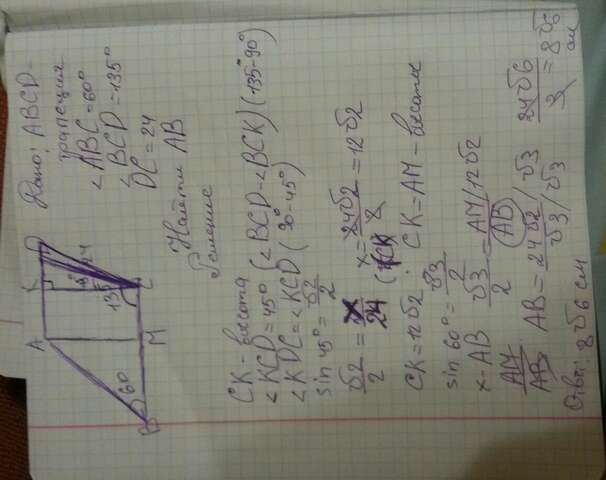 Дано: ABCD -
трапеция
∠ABC = 60°
∠BCD = 135°
DC = 24
Найти AB
Решение
A K D
24
45°
135
60
B M C
CK - высота
∠KCD = 45° (∠BCD - ∠BCK) (135° - 90°)
∠KDC = ∠KCD (90° - 45°)
sin 45° = √2/2
√2/2 = x/24 (CK) x = 24√2/2 = 12√2
CK = 12√2. CK = AM - высота
sin 60° = √3/2
x - AB √3/2 = AM/12√2 / AB
AM/AB AB = 24√2/√3 /√3/√3 24√6/3 = 8√6 см
Ответ: 8√6 см